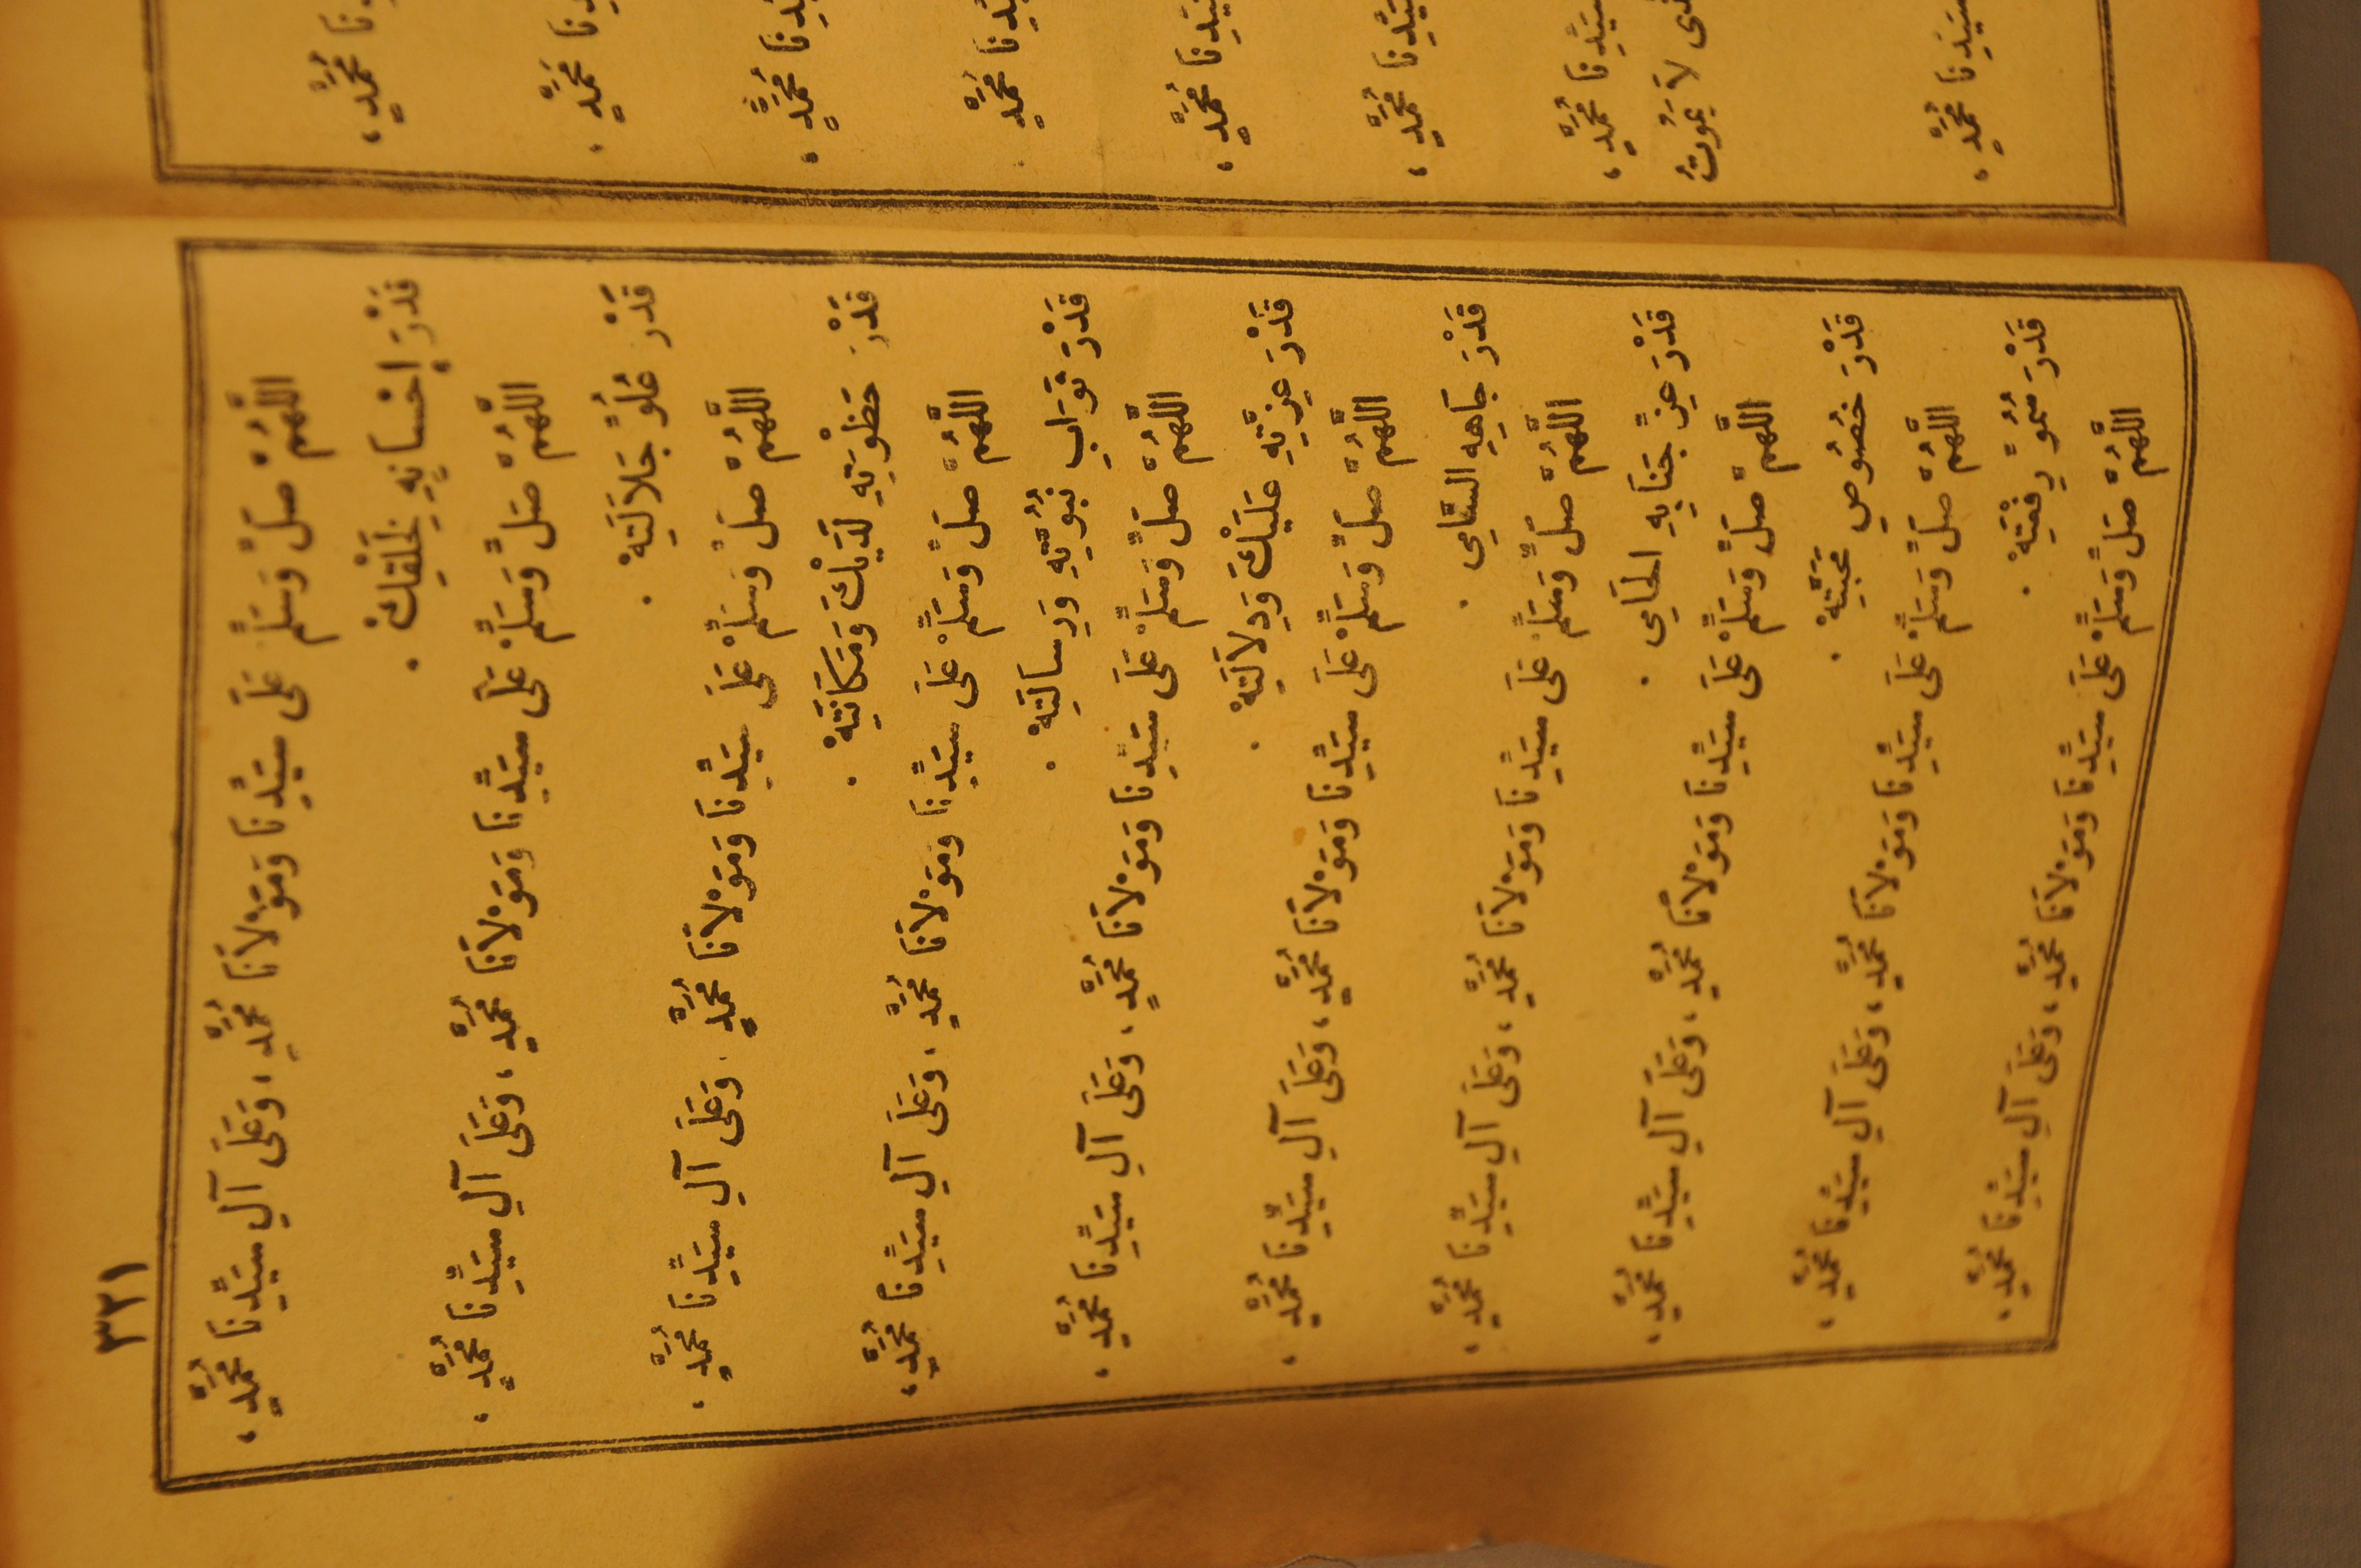 مُحَمَّدٍ،
مُحَمَّدٍ،
مُحَمَّدٍ،
مُحَمَّدٍ،
سَيِّدِنَا مُحَمَّدٍ،
سَيِّدِنَا مُحَمَّدٍ،
سَيِّدِنَا مُحَمَّدٍ،
لَا يَمُوتُ
سَيِّدِنَا مُحَمَّدٍ،
٣٢١
اللَّهُمَّ صَلِّ وَسَلِّمْ عَلَى سَيِّدِنَا وَمَوْلَانَا مُحَمَّدٍ، وَعَلَى آلِ سَيِّدِنَا مُحَمَّدٍ،
قَدْرَ إِحْسَانِهِ لِخَلْقِكْ.
اللَّهُمَّ صَلِّ وَسَلِّمْ عَلَى سَيِّدِنَا وَمَوْلَانَا مُحَمَّدٍ، وَعَلَى آلِ سَيِّدِنَا مُحَمَّدٍ،
قَدْرَ عُلُوِّ جَلَالَتِهْ.
اللَّهُمَّ صَلِّ وَسَلِّمْ عَلَى سَيِّدِنَا وَمَوْلَانَا مُحَمَّدٍ، وَعَلَى آلِ سَيِّدِنَا مُحَمَّدٍ،
قَدْرَ حَظْوَتِهِ لَدَيْكَ وَمَكَانَتِهْ.
اللَّهُمَّ صَلِّ وَسَلِّمْ عَلَى سَيِّدِنَا وَمَوْلَانَا مُحَمَّدٍ، وَعَلَى آلِ سَيِّدِنَا مُحَمَّدٍ،
قَدْرَ ثَوَابِ نُبُوَّتِهِ وَرِسَالَتِهْ.
اللَّهُمَّ صَلِّ وَسَلِّمْ عَلَى سَيِّدِنَا وَمَوْلَانَا مُحَمَّدٍ، وَعَلَى آلِ سَيِّدِنَا مُحَمَّدٍ،
قَدْرَ عِزَّتِهِ عَلَيْكَ وَدِلَالَتِهْ.
اللَّهُمَّ صَلِّ وَسَلِّمْ عَلَى سَيِّدِنَا وَمَوْلَانَا مُحَمَّدٍ، وَعَلَى آلِ سَيِّدِنَا مُحَمَّدٍ،
قَدْرَ جَاهِهِ السَّامِي.
اللَّهُمَّ صَلِّ وَسَلِّمْ عَلَى سَيِّدِنَا وَمَوْلَانَا مُحَمَّدٍ، وَعَلَى آلِ سَيِّدِنَا مُحَمَّدٍ،
قَدْرَ عِزِّ جَنَابِهِ الْحَامِي.
اللَّهُمَّ صَلِّ وَسَلِّمْ عَلَى سَيِّدِنَا وَمَوْلَانَا مُحَمَّدٍ، وَعَلَى آلِ سَيِّدِنَا مُحَمَّدٍ،
قَدْرَ خُصُوصِ مَحَبَّتِهْ.
اللَّهُمَّ صَلِّ وَسَلِّمْ عَلَى سَيِّدِنَا وَمَوْلَانَا مُحَمَّدٍ، وَعَلَى آلِ سَيِّدِنَا مُحَمَّدٍ،
قَدْرَ سُمُوِّ رِفْعَتِهْ.
اللَّهُمَّ صَلِّ وَسَلِّمْ عَلَى سَيِّدِنَا وَمَوْلَانَا مُحَمَّدٍ، وَعَلَى آلِ سَيِّدِنَا مُحَمَّدٍ،